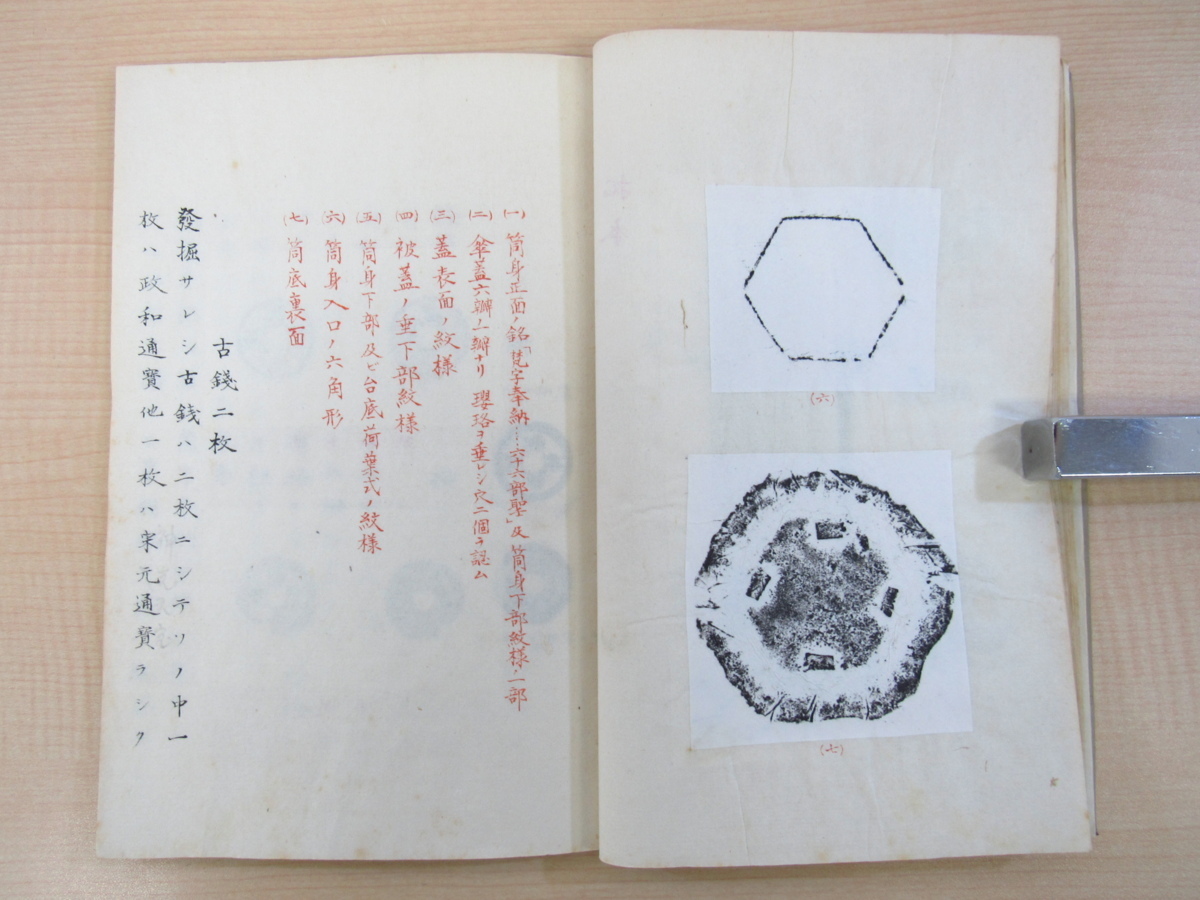 (六)
(七)
(一) 筒身正面ノ銘「梵字奉納……六十六部聖」及筒身下部紋様ノ一部
(二) 傘蓋六瓣ノ一瓣ナリ 瓔珞ヲ垂レシ穴二個ヲ認ム
(三) 蓋表面ノ紋様
(四) 被蓋ノ垂下部紋様
(五) 筒身下部及ビ台底荷葉式ノ紋様
(六) 筒身入口ノ六角形
(七) 筒底裏面
古錢二枚
發掘サレシ古錢ハ二枚ニシテソノ中一
枚ハ政和通寳他一枚ハ宋元通寳ラシク